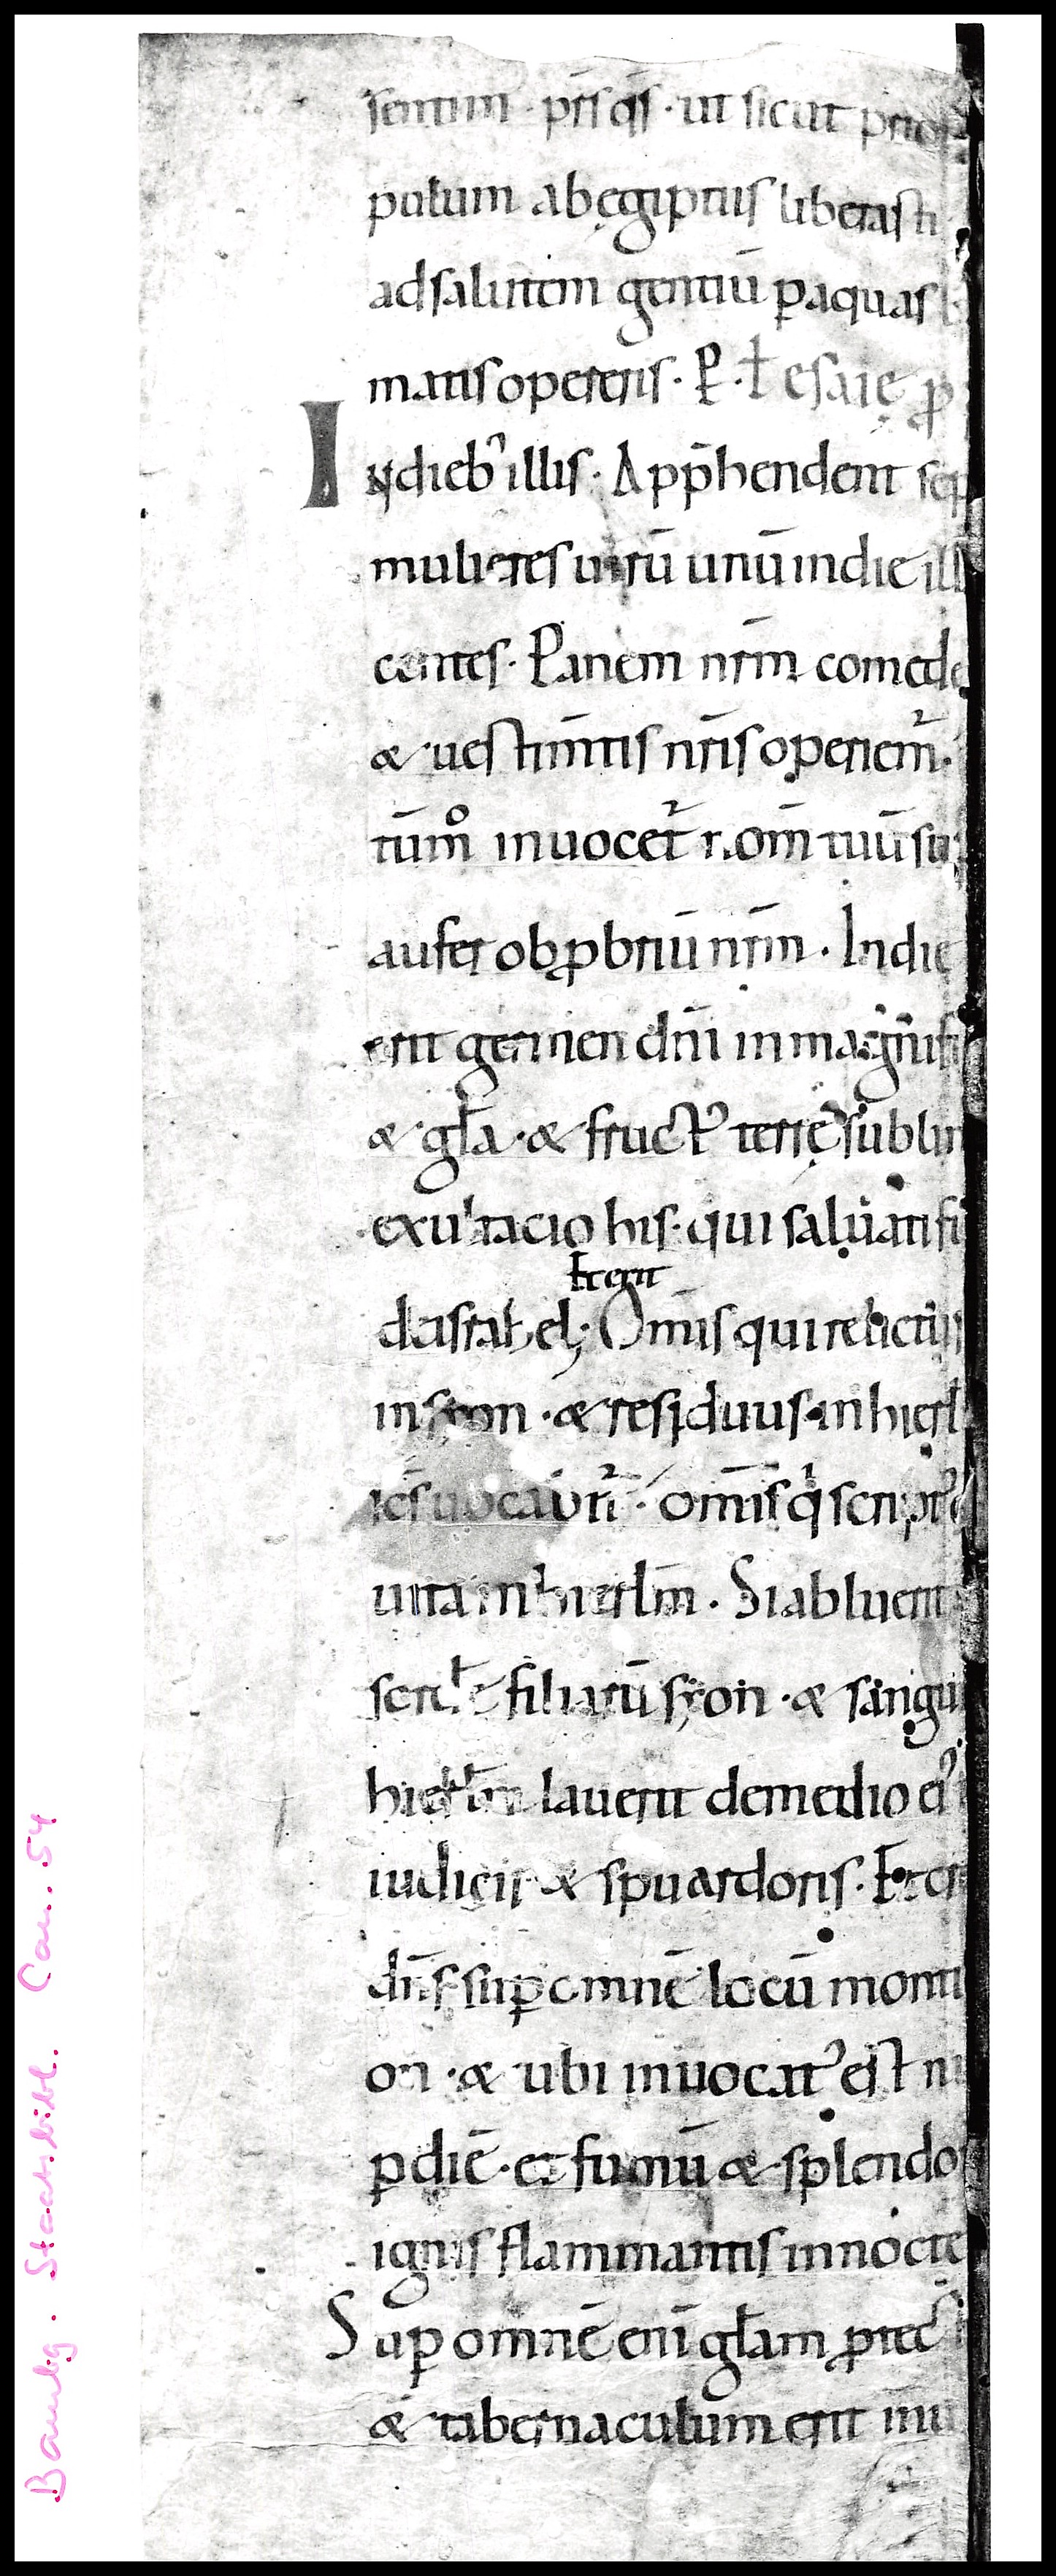 sentim · p̄ris q̄s · ut sicut prior
pulum ab ęgiptiis liberasti
ad salutem gentiū ꝑ aquas
matis opereris · P · ł esaię ꝓ
Indieb᾿ illis · App̄hendent sep
mulieres uirū unū indie ill
centes · Panem nr̄m comede
& uestim̄tis nr̄is operiem̄ ·
tūm̊ inuocet᾿ nom̄ tuū sup
aufer obꝓbriū nr̄m · Indie
erit germen dn̄i in magnifi
& gła · & fruct᾿ terrę sublim
exultacio his · qui saluati fu
Et erit
deisrahel; Om̄is qui relictus
in syon · & residuus in hierł
sc̄s uocabit᾿ · om̄is q̇ script᾿
uita in hierłm · Si abluerit
filiarū syon · & sangui
hierłm lauerit de medio ei᾿
iudicii & spu ardoris · Et cr
dn̄s suꝑ omnē locū monti
on · & ubi inuocat᾿ est
ꝑ diē · et fumū & splendo
ignis flammantis in nocte
Suꝑ omnē eni głam ꝓtec
& tabernaculum erit
Bambg. Staatsbibl. Can. 54